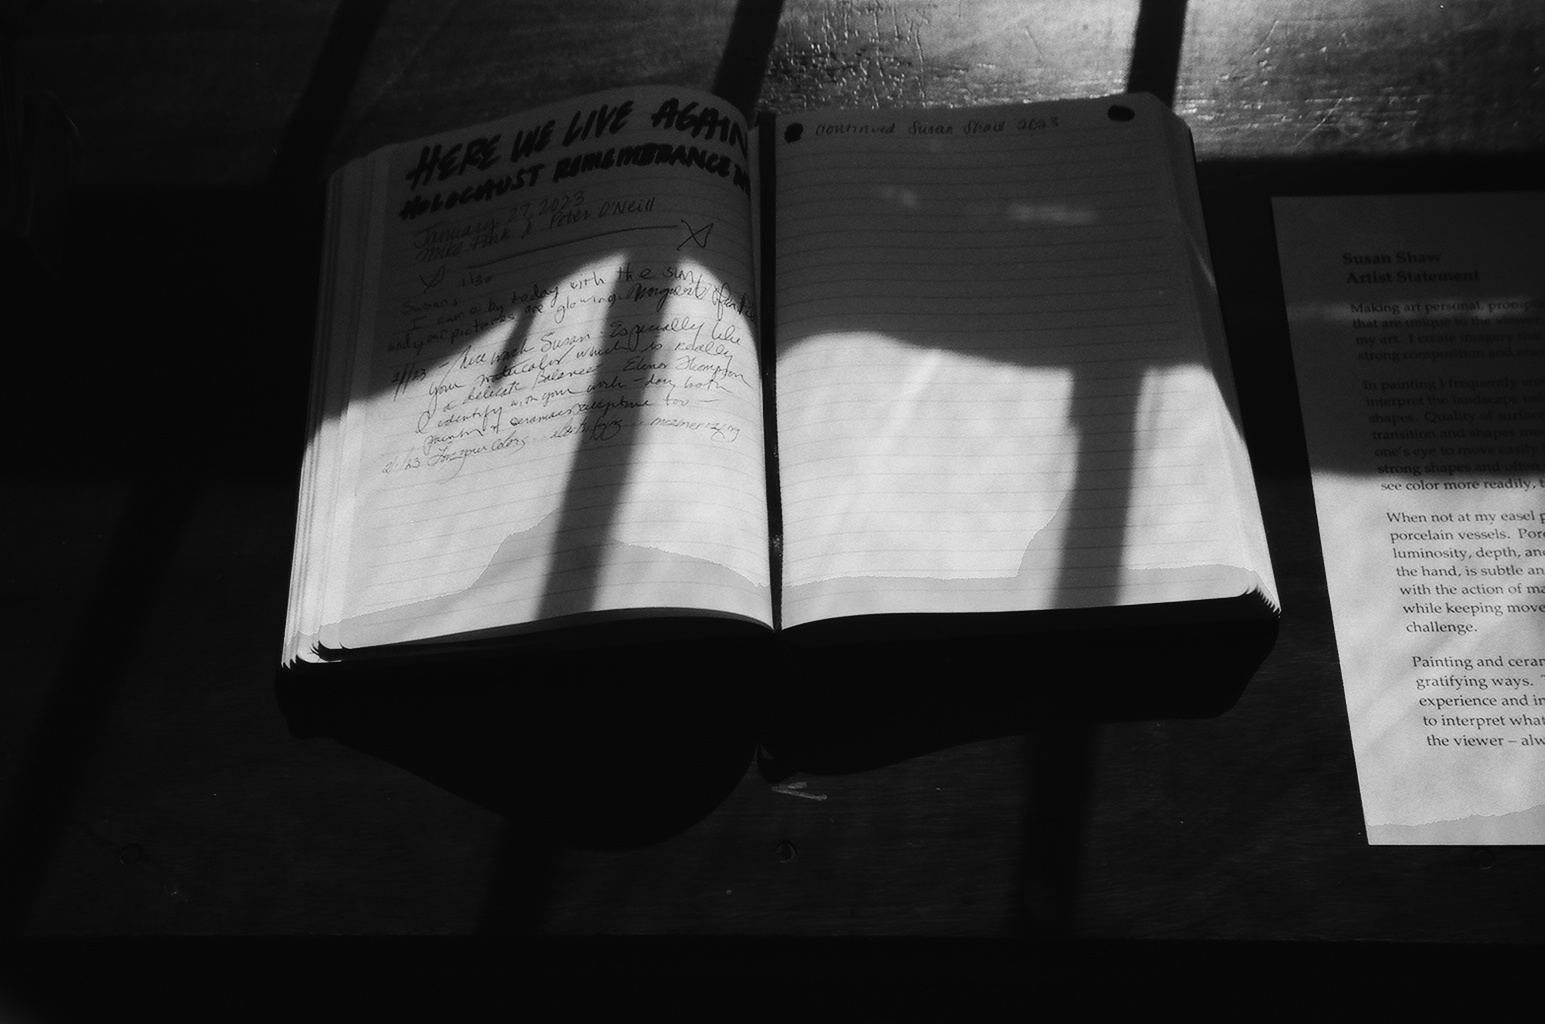 HERE WE LIVE AGAIN
HOLOCAUST REMEMBRANCE
January 27, 2023
Mike Fink & Peter O'Neill
1/30
Susan,
I came by today with the sun
and your pictures are glowing. Margaret
2/1/23 - Nice work Susan - Especially like
your watercolor which is really
a delicate balance. Elinor Thompson
I identify with your work - doing both
painting & ceramics/sculpture too -
2/1/23 Love your colors - electrifying & mesmerizing
continued Susan Shaw 2023
Susan Shaw
Artist Statement
Making art personal,
that are unique to the viewer,
my art. I create imagery
strong composition and
In painting I frequently
interpret the landscape
shapes. Quality of
transition and shapes
one's eye to move easily
strong shapes and often
see color more readily,
When not at my easel
porcelain vessels.
luminosity, depth,
the hand, is subtle
with the action of
while keeping
challenge.
Painting and
gratifying ways.
experience and
to interpret what
the viewer –